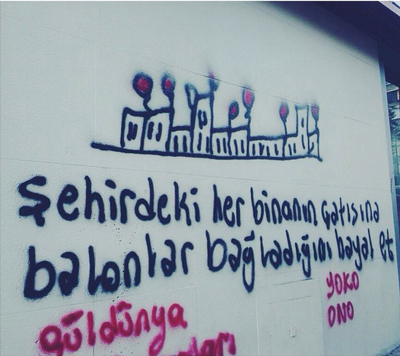 şehirdeki her binanın çatısına
balonlar bağladığını hayal et
YOKO
ONO
güldünya